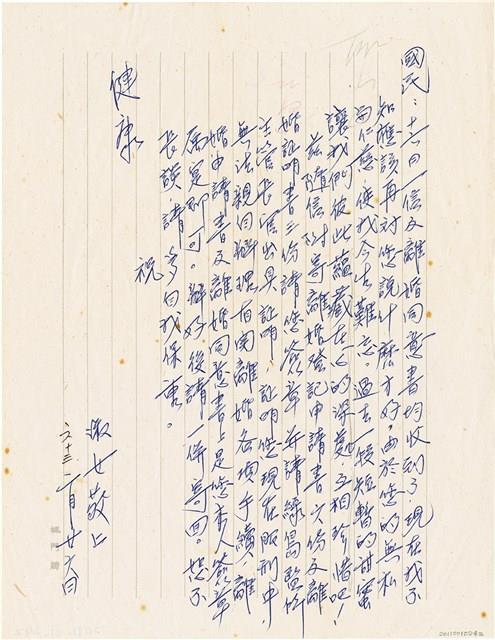 國民：十六日信及離婚同意書均收到了，現在我不
知應該再對您說什麼才好。由於您的無私
與仁慈，使我今生難忘。過去一段短暫的甜蜜
讓我們彼此蘊藏在心的深處，互相珍惜吧！
茲隨信附寄離婚登記申請書六份及離
婚証明書三份請您簽章并請綠島監獄
主管長官出具証明，証明您現在服刑中，
無法親自辦理有關離婚各項手續，離
婚申請書及離婚同意書上是您本人簽章
屬實即可。辦好後請一併寄回。恕不
長談，請多自我保重。
祝
健康
淑女敬上
六十三、一月廿六日